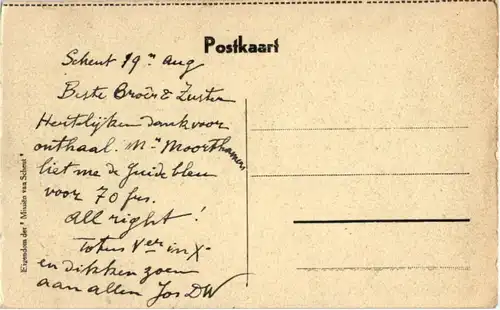 Postkaart
Scheut 19n Aug
Beste Broêr & Zuster
Hertelijken dank voor
onthaal. Mr Moorthamers
liet me de Guide bleu
voor 70 frs.
All right!
Totus Ver in X°
en dikken zoen
aan allen Jos DW
Eigendom der "Missiën van Scheut"